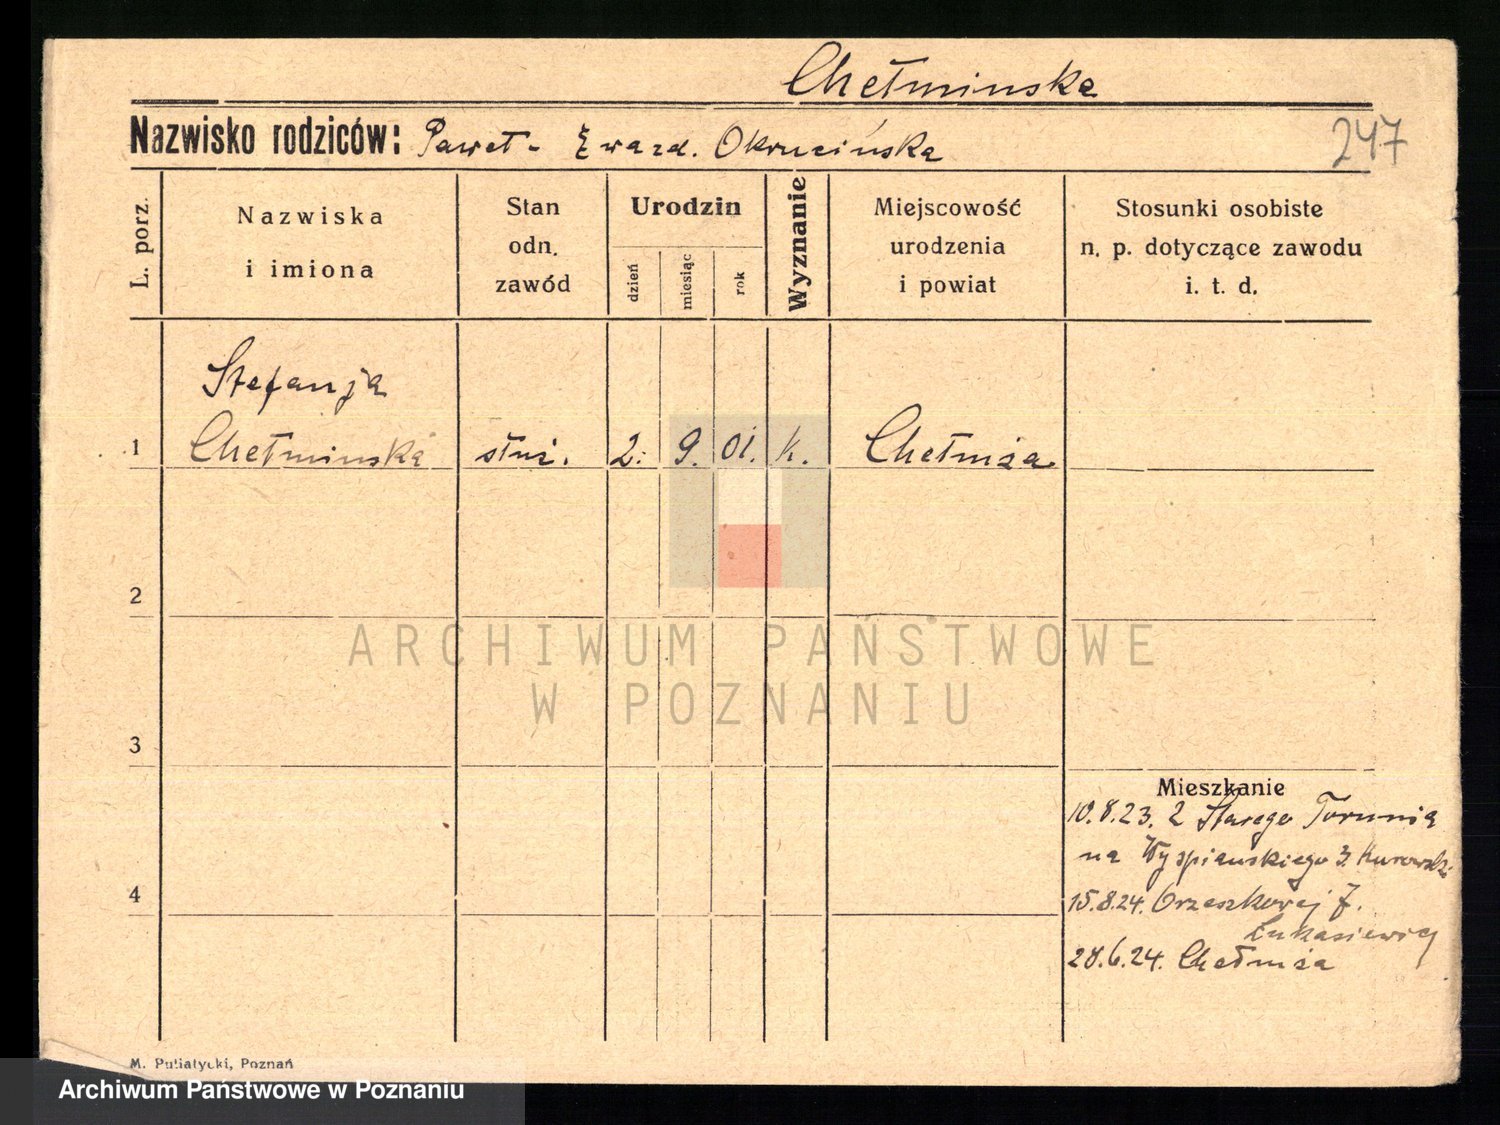 Chełminska
Nazwisko rodziców: Paweł - Okrucińska
247
L. porz.
Nazwiska
i imiona
Stan
odn.
zawód
Urodzin
dzień
miesiąc
rok
Wyznanie
Miejscowość
urodzenia
i powiat
Stosunki osobiste
n. p. dotyczące zawodu
i. t. d.
Stefanja
1 Chełminska służ. 2. 9. 01. k. Chełmża
2
3
4
ARCHIWUM PAŃSTWOWE
W POZNANIU
Mieszkanie
10.8.23. 2 Starego Torunia
na Wyspianskiego 3. Kurowski
15.8.24. Orzeszkowej 7.
Łukasiewicz
28.6.24. Chełmża
M. Putiatycki, Poznań
Archiwum Państwowe w Poznaniu